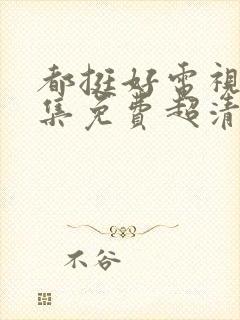 都挺好電視
集免費超清
不谷